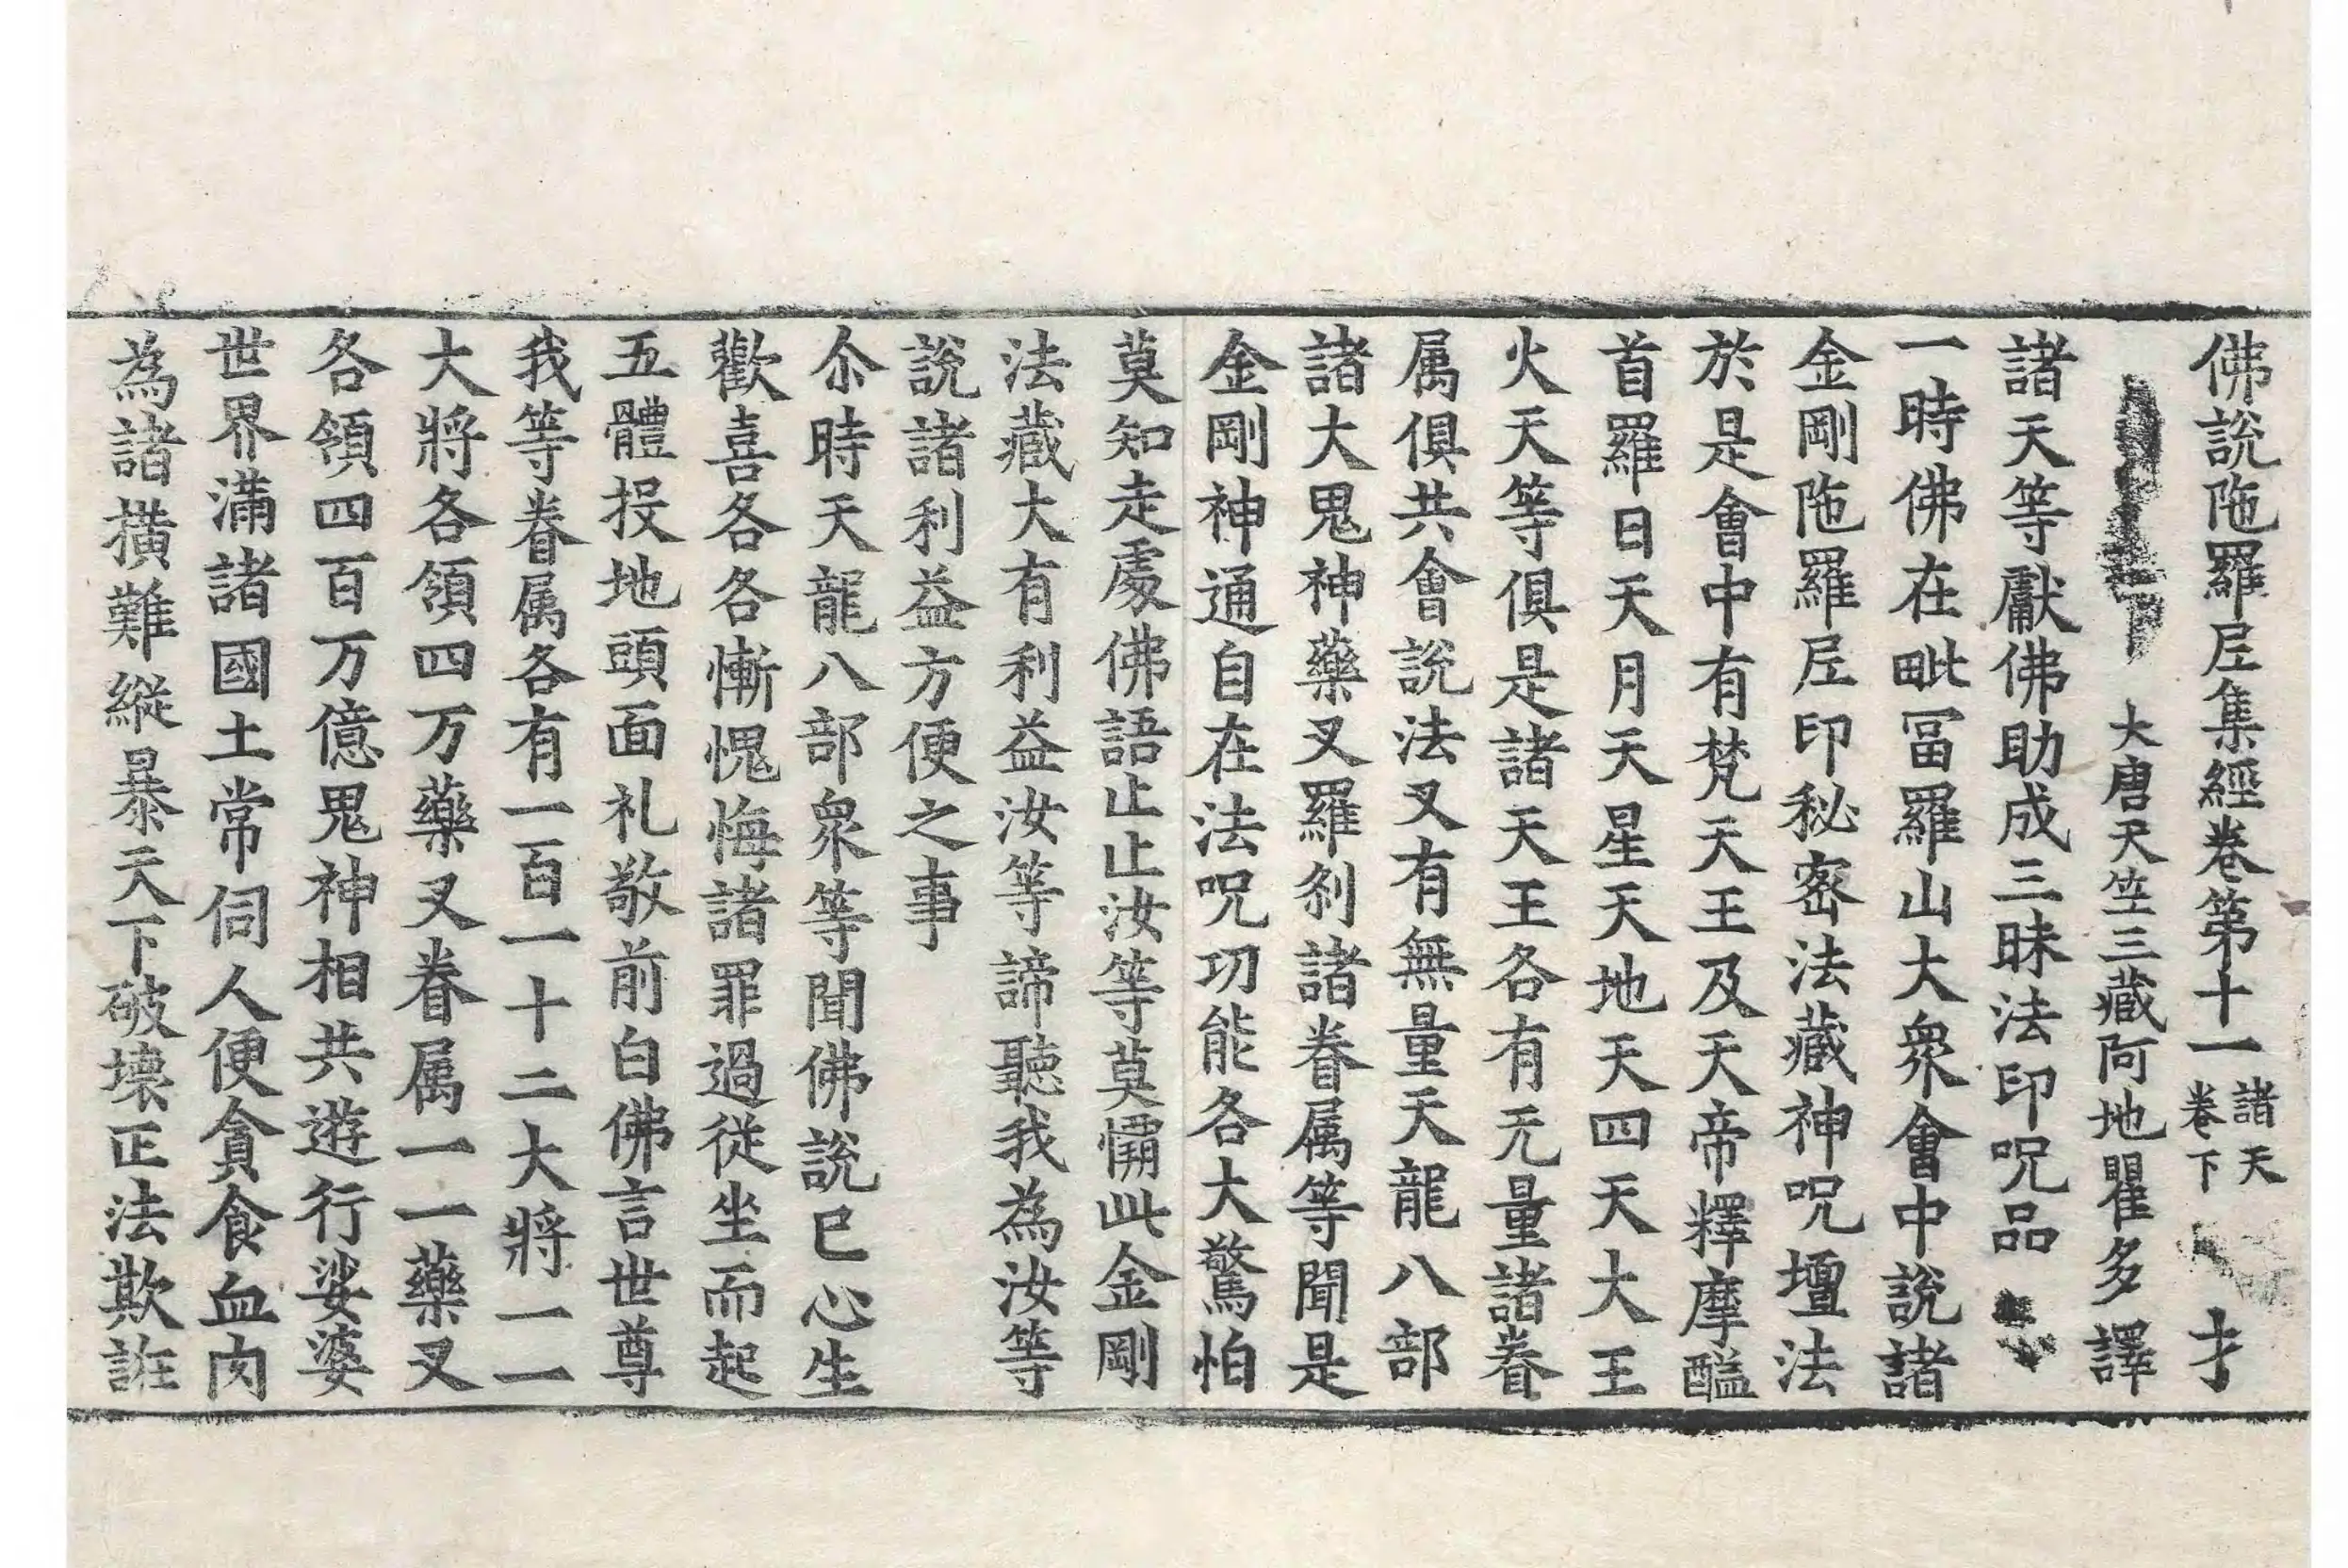 佛說陁羅尼集經卷第十一 諸天卷下 才
大唐天竺三藏阿地瞿多譯
諸天等獻佛助成三昧法印呪品
一時佛在毗冨羅山大衆會中說諸
金剛陁羅尼印秘密法藏神呪壇法
於是會中有梵天王及天帝釋摩醯
首羅日天月天星天地天四天大王
火天等俱是諸天王各有无量諸眷
属俱共會說法又有無量天龍八部
諸大鬼神藥叉羅刹諸眷属等聞是
金剛神通自在法呪功能各大驚怕
莫知走處佛語止止汝等莫懼此金剛
法藏大有利益汝等諦聽我為汝等
說諸利益方便之事
尒時天龍八部衆等聞佛說已心生
歡喜各各慚愧悔諸罪過從坐而起
五體投地頭面礼敬前白佛言世尊
我等眷属各有一百一十二大將一一
大將各領四万藥叉眷属一一藥叉
各領四百万億鬼神相共遊行娑婆
世界滿諸國土常伺人便貪食血肉
為諸橫難縱暴天下破壞正法欺誑